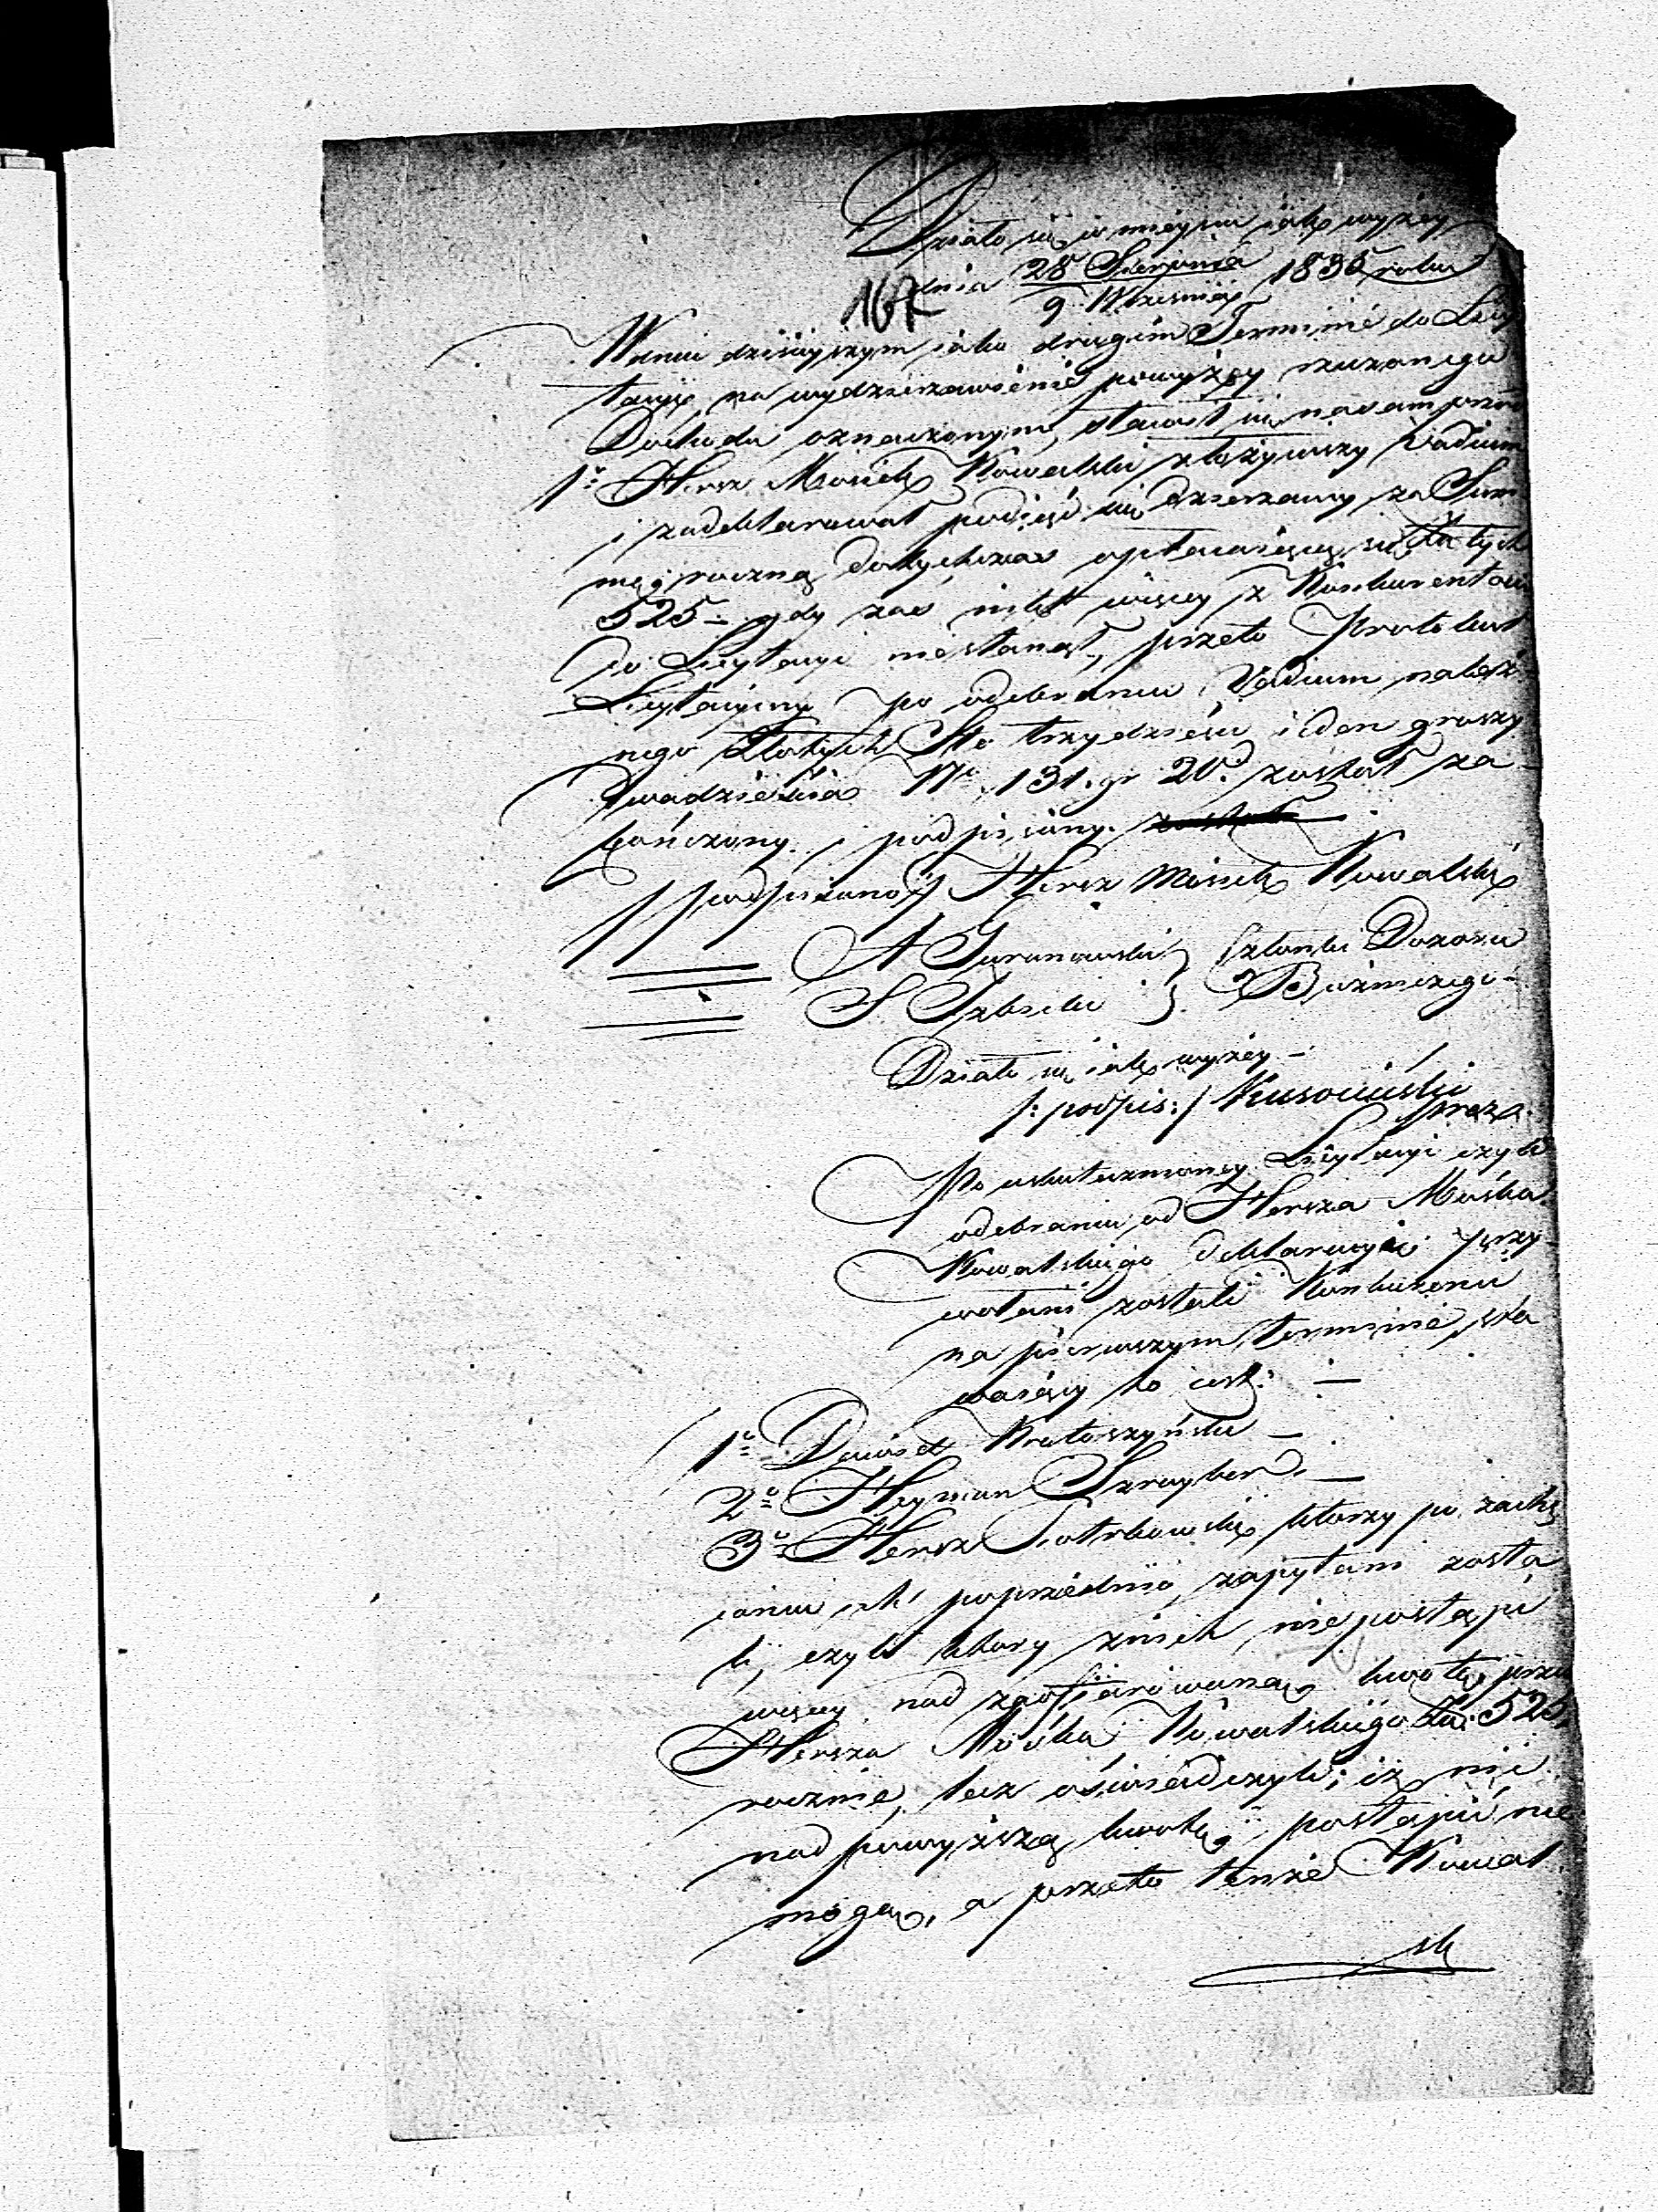 Działo się w mieyscu iak wyżey
dnia 28 Sierpnia / 9 Września 1835 roku
167
W dniu dzisieyszym iako drugim Terminie do Licy
tacyi na wydzierzawienie powyżey rzeczonego
Dochodu oznaczonym, stawił się
1o Hersz Mosiek Kowalski złożywszy Vadium
i zadeklarował podiąć się dzierzawy za Sum
mę roczną dotychczas opłacaiącą się Złotych
525 – gdy zaś nikt więcey z Konkurentów
do Licytacyi nie stanął, przeto Protokuł
Licytacyiny po odebraniu Vadium należ
nego Złotych Sto trzydzieści ieden groszy
dwadzieścia No 131. gr 20. został za
kończony i podpisany. został
/podpisano/ Hersz Mosiek Kowalski
A Juranowski } Członki Dozoru
S Izbicki } Bożniczego –
Działo się iak wyżey –
/: podpis: / Kusociński
Po uskutecznioney Licytacyi czyli
odebraniu od Hersza Mośka
Kowalskiego deklaracyi przy
wołani zostali Konkurenci
na pierwszym terminie sta
waiący to iest: –
1o Dawid Krotoszyński –
2o Heyman Szrayber –
3o Hersz Piotrkowski którzy po zachę
ceniu ich poprzednio, zapytani zosta
li, czyli który z nich nie postąpi
więcey nad zaofiarowaną kwotę przez
Hersza Mośka Kowalskiego Zł: 525
rocznie, lecz oświadczyli; iż nic
nad powyższą kwotę postąpić nie
mogą, a przeto tenże Kowal
ski